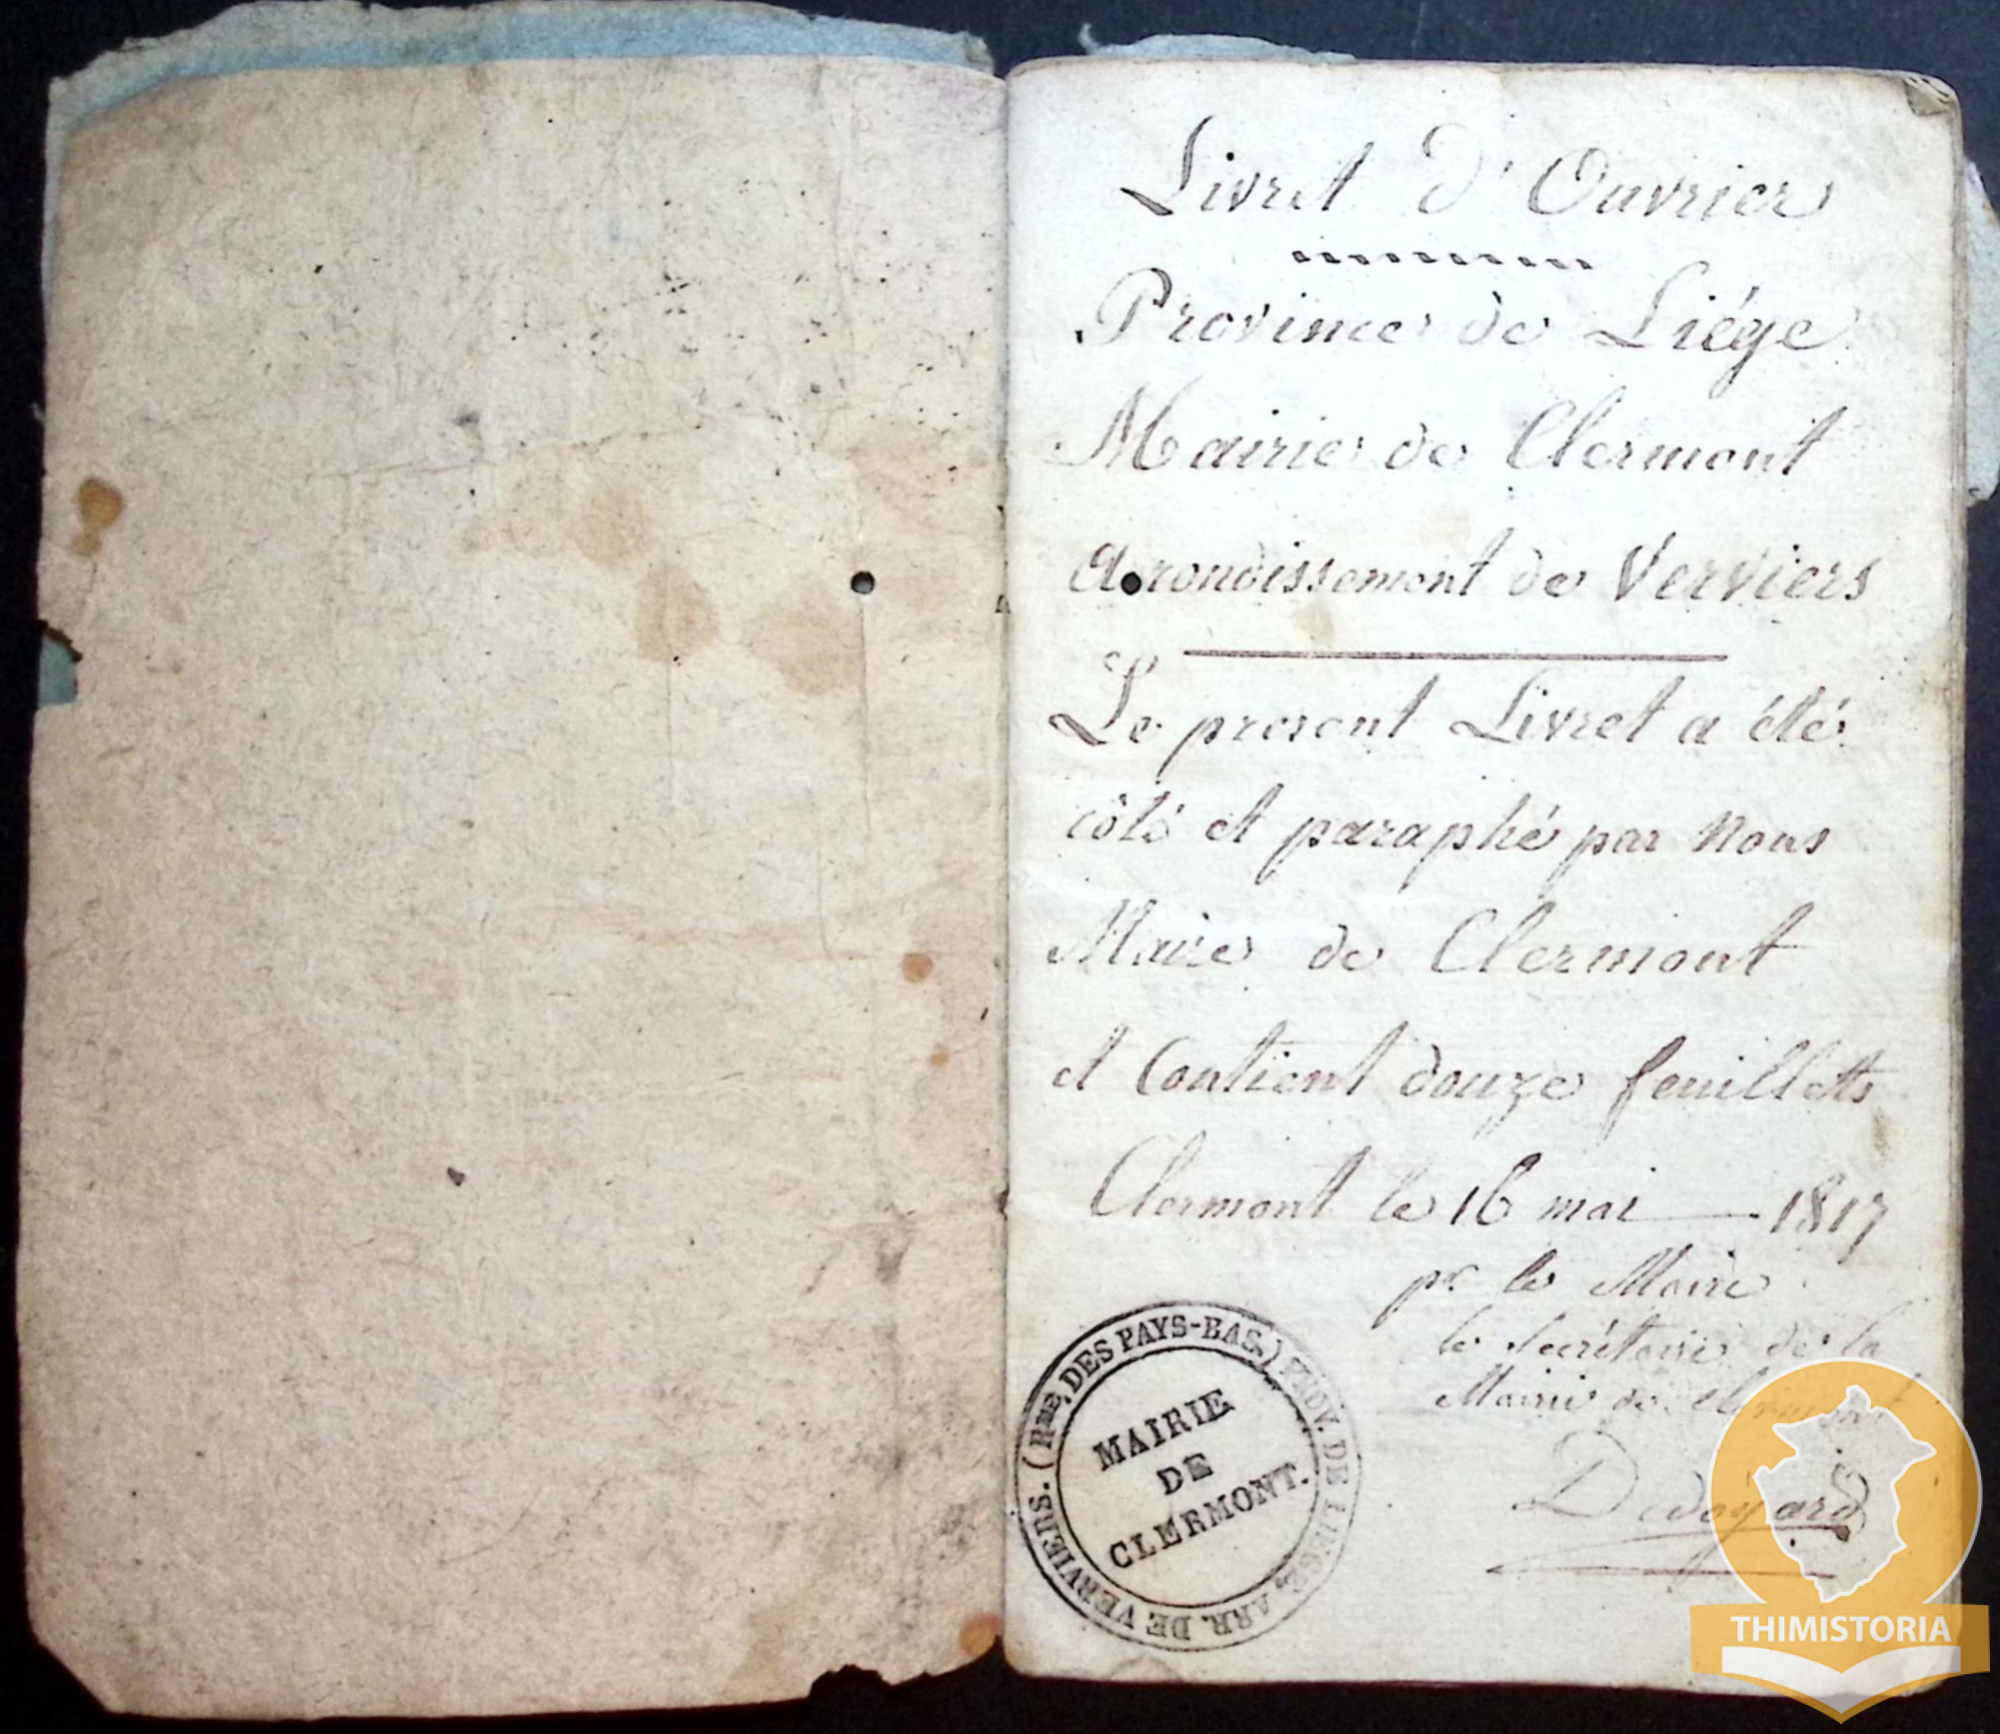 Livret d'Ouvrier
Province de Liége
Mairie de Clermont
Arrondissement de Verviers
Le present Livret a été
côté et paraphé par Nous
Maire de Clermont
et Contient douze feuillets
Clermont le 16 mai 1817
pr. le Maire
le Secrétaire de la
Mairie de Clermont
Dedoyard
(RME. DES PAYS-BAS.) PROV. DE LIEGE, ARR. DE VERVIERS.
MAIRIE
DE
CLERMONT.
THIMISTORIA